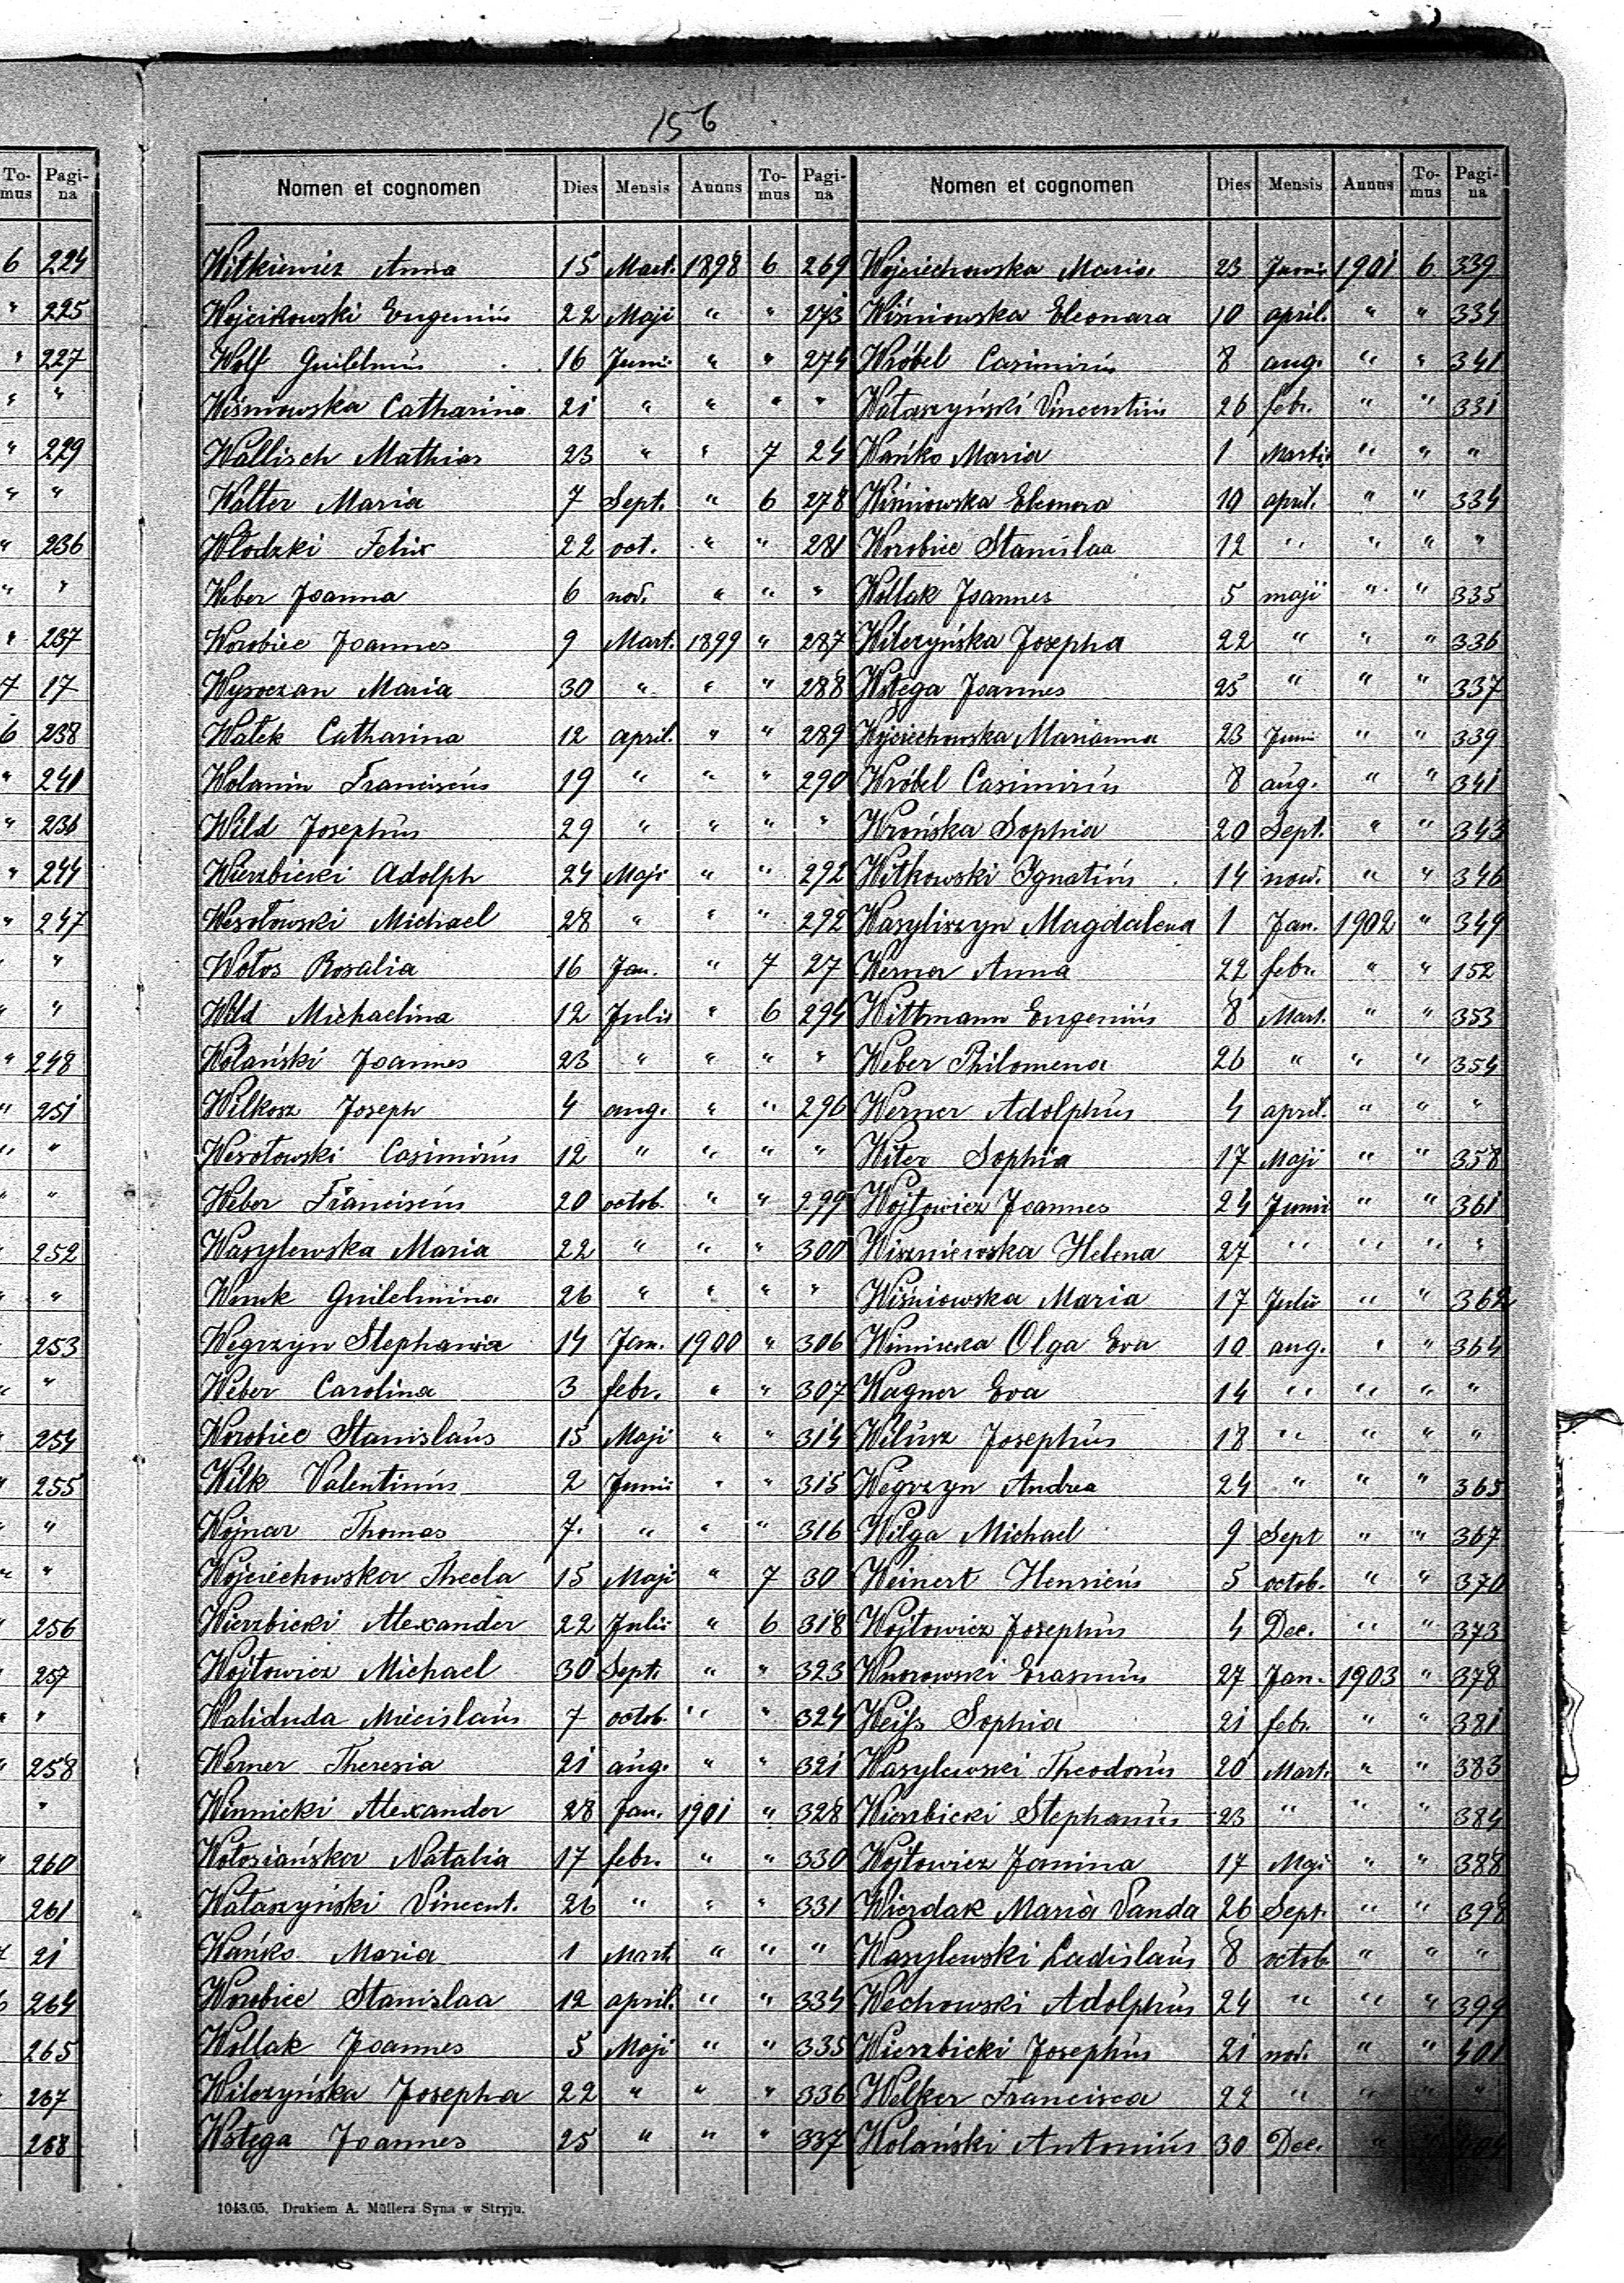 156
To-mus Pagi-na
6 224
" 225
" 227
" "
" 229
" "
" 236
" "
" 237
7 17
6 238
" 241
" 236
" 244
" 247
" "
" "
" 248
" 251
" "
" "
" 252
" "
" 253
" "
" 254
" 255
" "
" "
" 256
" 257
" "
" 258
"
" 260
261
21
264
265
267
268
Nomen et cognomen Dies Mensis Annus To-mus Pagi-na
Witkiewicz Anna 15 Mart. 1898 6 269
Wojcikowski Eugenius 22 Maji " " 273
Wolf Guilelmus 16 Junii " " 274
Wiśniowska Catharina 21 " " " "
Wallisch Mathias 23 " " 7 24
Walter Maria 7 Sept. " 6 278
Włodzki Felix 22 oct. " " 281
Weber Joanna 6 nov. " " "
Worobiec Joannes 9 Mart. 1899 " 287
Wysoczan Maria 30 " " " 288
Watek Catharina 12 april. " " 289
Wolanin Franciscus 19 " " " 290
Wild Josephus 29 " " " "
Wierzbicki Adolph 24 Maji " " 292
Wesołowski Michael 28 " " " 292
Wołos Rosalia 16 Jan. " 7 27
Wild Michaelina 12 Julii " 6 294
Wolański Joannes 23 " " " "
Wilkosz Joseph 4 aug. " " 296
Wesołowski Casimirus 12 " " " "
Weber Franciscus 20 octob. " " 299
Wasylewska Maria 22 " " " 300
Guilelmina 26 " " " "
Węgrzyn Stephania 14 Jan. 1900 " 306
Weber Carolina 3 febr. " " 307
Worobiec Stanislaus 15 Maji " " 314
Wilk Valentinus 2 Junii " " 315
Wojnar Thomas 7. " " " 316
Wojciechowska Thecla 15 Maji " 7 30
Wierzbicki Alexander 22 Julii " 6 318
Wojtowicz Michael 30 Sept. " " 323
Waliduda Miecislaus 7 octob. " " 324
Werner Theresia 21 aug. " " 321
Winnicki Alexander 28 Jan. 1901 " 328
Wołosiańska Natalia 17 febr. " " 330
Wataszyński Vincent. 26 " " " 331
Wańko Maria 1 Mart. " " "
Worobiec Stanislaa 12 april. " " 334
Wollak Joannes 5 Maji " " 335
Wilczyńska Josepha 22 " " " 336
Wstęga Joannes 25 " " " 337
Nomen et cognomen Dies Mensis Annus To-mus Pagi-na
Wojciechowska Maria 23 Junii 1901 6 339
Wiśniowska Eleonara 10 april. " " 334
Wróbel Casimirus 8 aug. " " 341
Wataszyński Vincentius 26 febr. " " 331
Wańko Maria 1 Martii " " "
Wiśniowska Eleonora 10 april. " " 334
Worobiec Stanislaa 12 " " " "
Wollak Joannes 5 maji " " 335
Wilczyńska Josepha 22 " " " 336
Wstęga Joannes 25 " " " 337
Wojciechowska Marianna 23 Junii " " 339
Wróbel Casimirus 8 aug. " " 341
Wrońska Sophia 20 Sept. " " 343
Witkowski Ignatius 14 now. " " 346
Wasyliszyn Magdalena 1 Jan. 1902 " 349
Werner Anna 22 febr. " " 152
Wittmann Eugenius 8 Mart. " " 353
Weber Philomena 26 " " " 354
Werner Adolphus 4 april. " " "
Witer Sophia 17 Maji " " 358
Wojtowicz Joannes 24 Junii " " 361
Wiszniewska Helena 27 " " " "
Wiśniowska Maria 17 Julii " " 362
Winnicka Olga Eva 10 aug. " " 364
Wagner Eva 14 " " " "
Wilusz Josephus 18 " " " "
Węgrzyn Andrea 24 " " " 365
Wilga Michael 9 Sept " " 367
Weinert Henricus 5 octob. " " 370
Wojtowicz Josephus 4 Dec. " " 373
Wnorowski Erasmus 27 Jan. 1903 " 378
Weiss Sophia 21 febr. " " 381
Wasylewski Theodorus 20 Mart. " " 383
Wierzbicki Stephanus 23 " " " 384
Wojtowicz Janina 17 Maji " " 388
Wierdak Maria Vanda 26 Sept. " " 398
Wasylewski Ladislaus 8 octob. " " "
Wechowski Adolphus 24 " " " 399
Wierzbicki Josephus 21 nov. " " 401
Welker Francisca 22 " " " "
Wolański Antonius 30 Dec. "
1043.05. Drukiem A. Müllera Syna w Stryju.